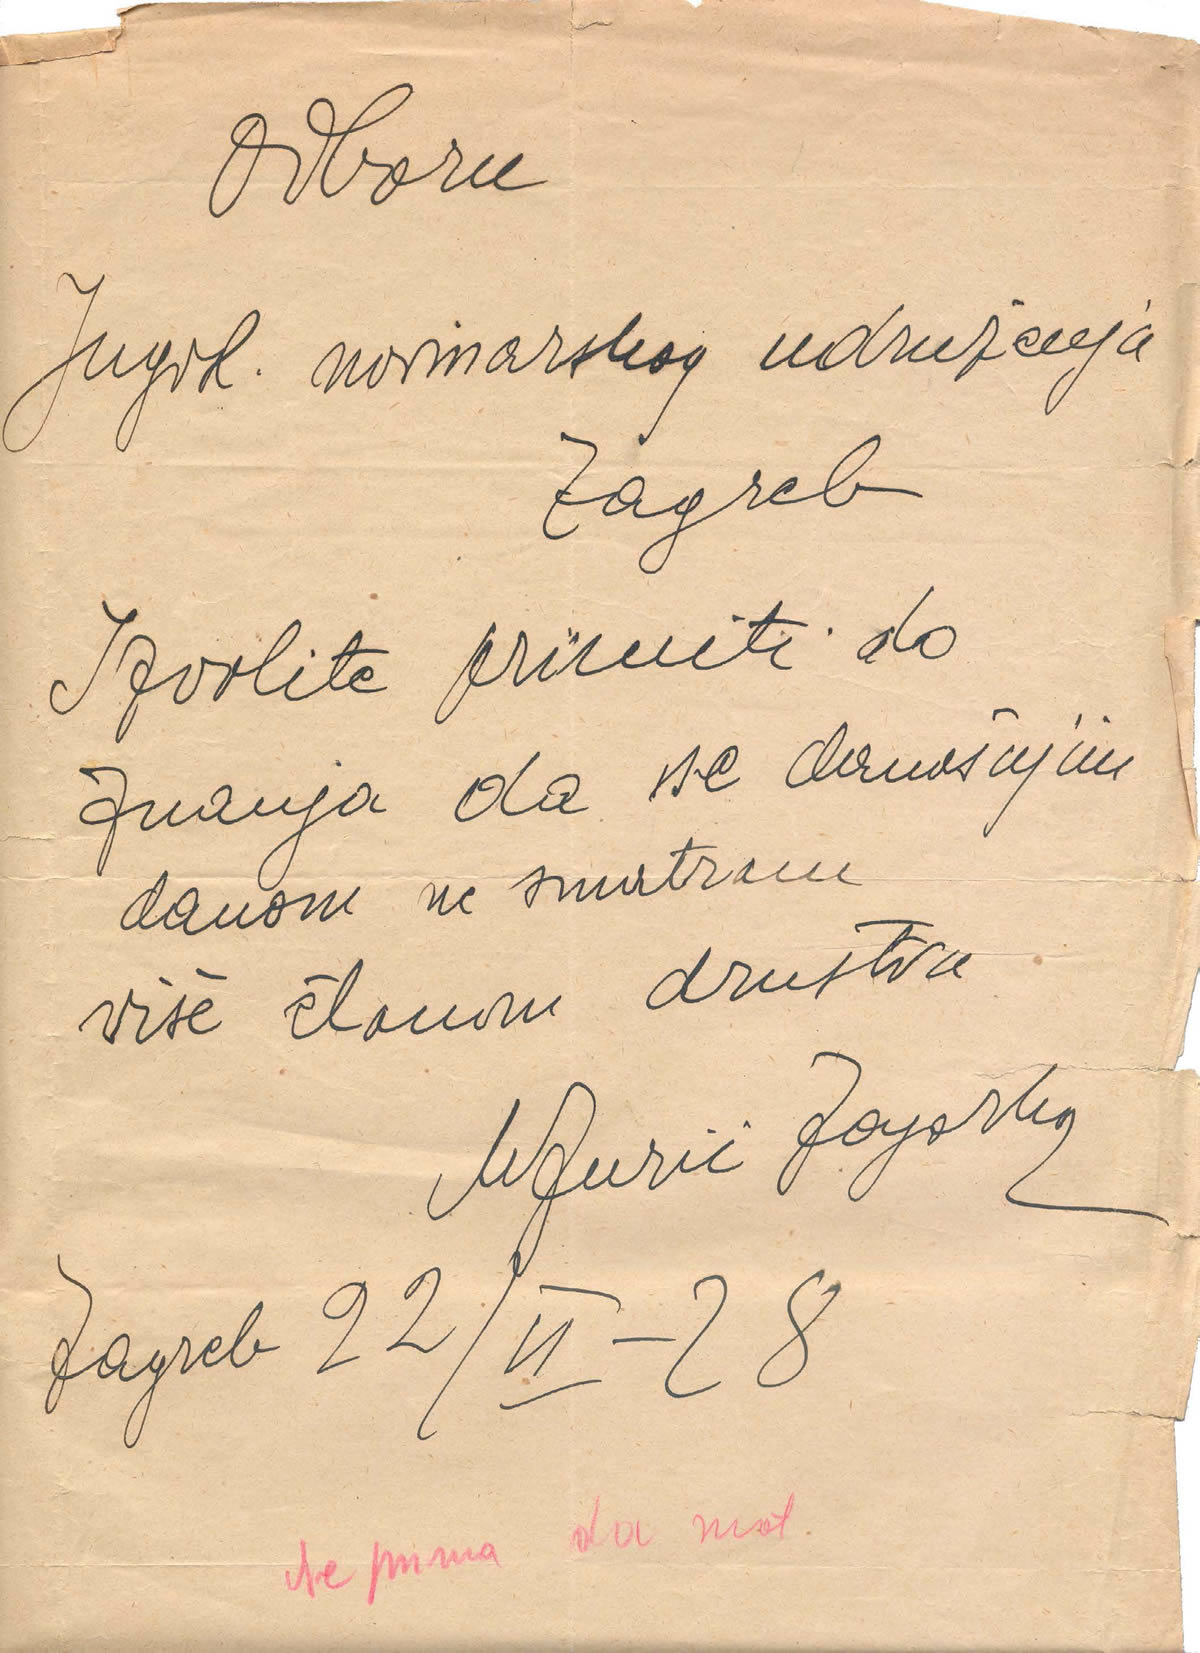 Odboru
Jugosl. novinarskog udruženja
Zagreb
Izvolite primiti do
znanja da se današnjim
danom ne smatram
više članom društva
MJurić Zagorka
Zagreb 22/II-28
da